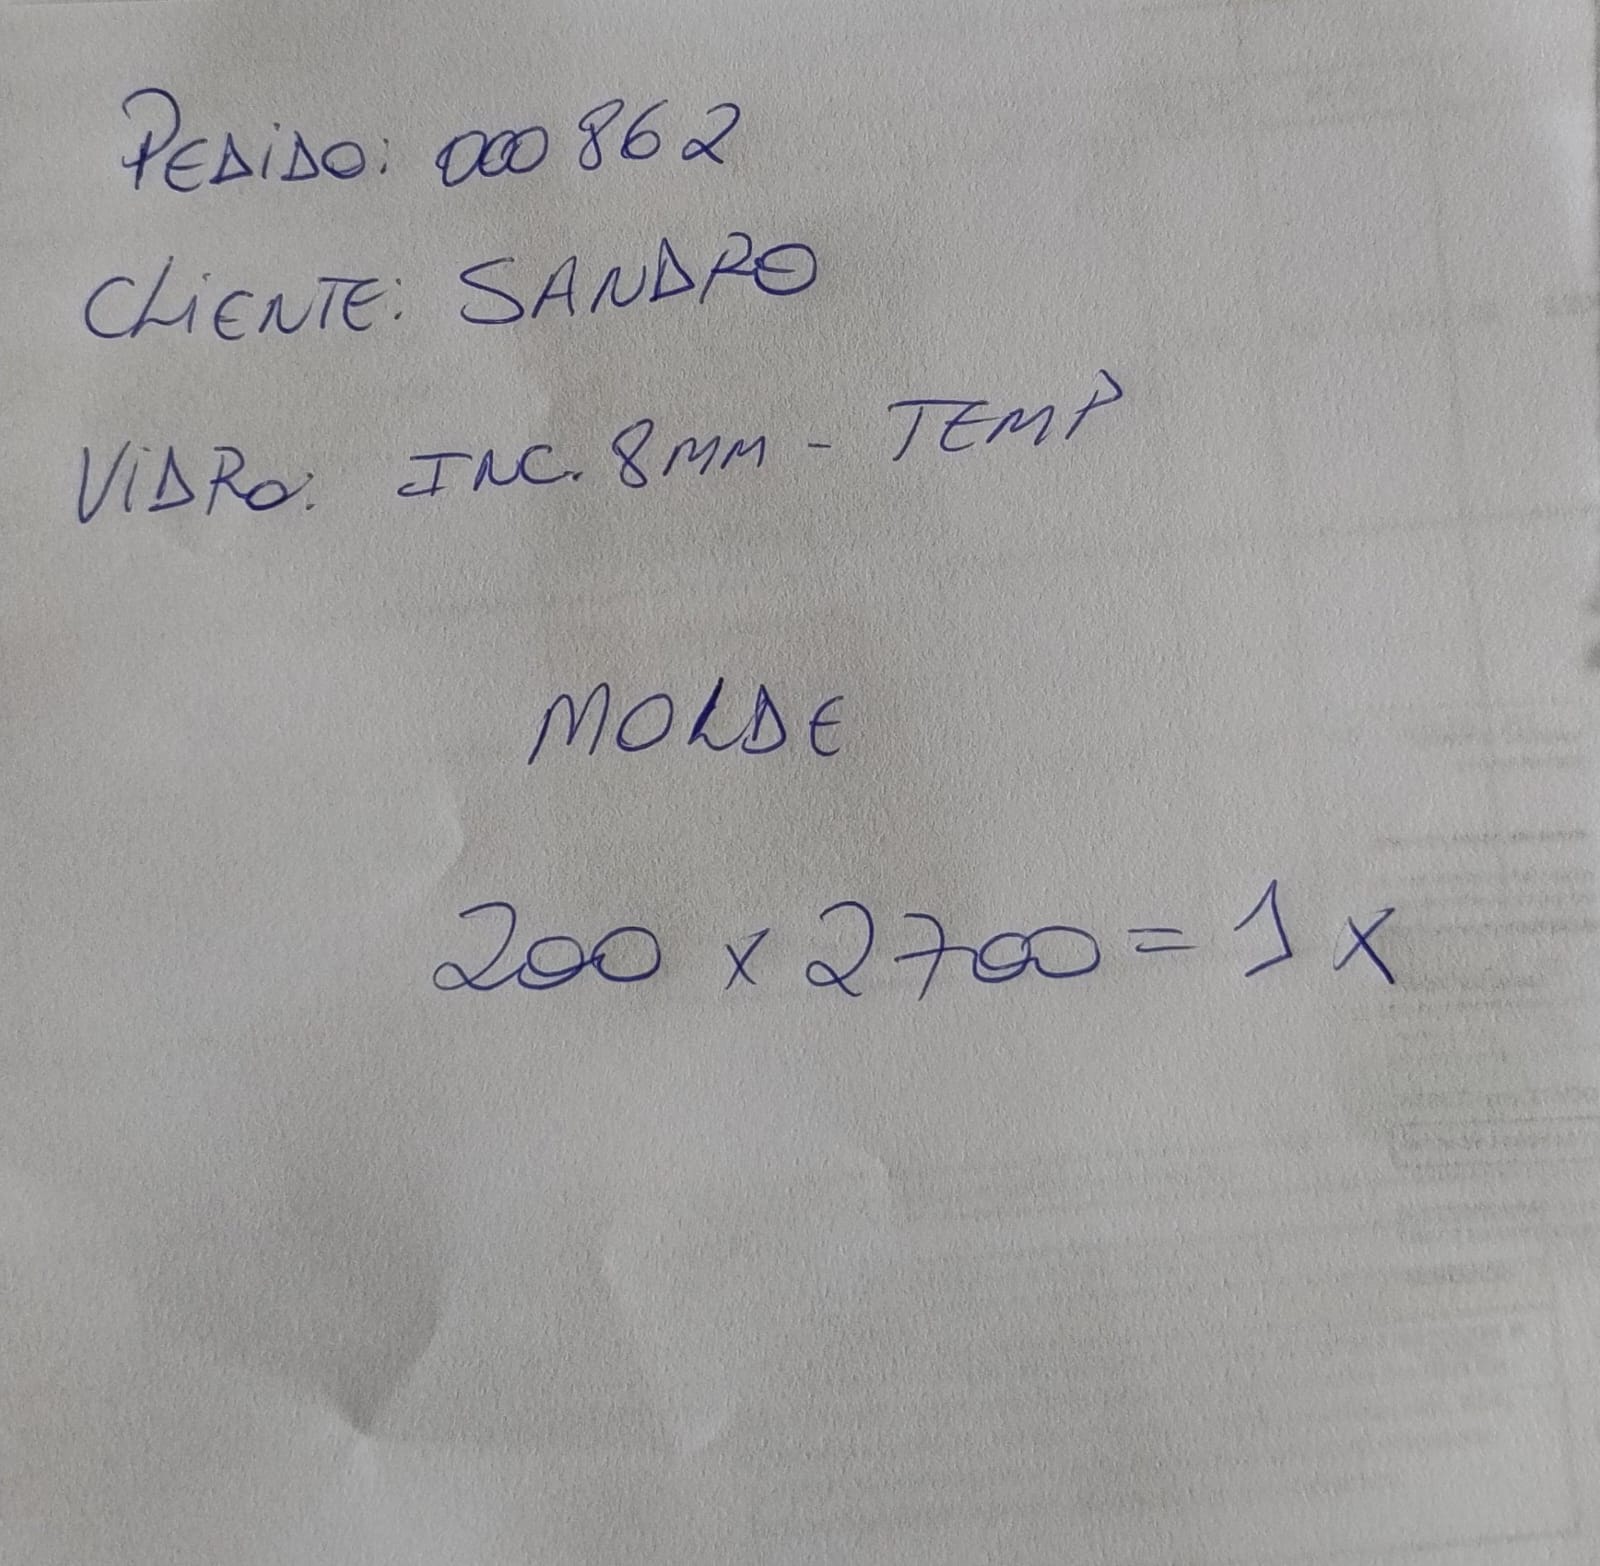 PEDIDO: 000862
CLIENTE: SANDRO
VIDRO: INC. 8MM - TEMP
MOLDE
200 x 2700 = 1 x